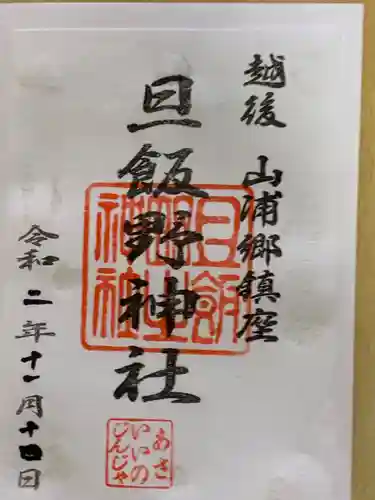 越後 山浦郷鎮座
旦飯野神社
令和二年十一月十四日
旦飯野神社
あさ
いいの
じんじゃ